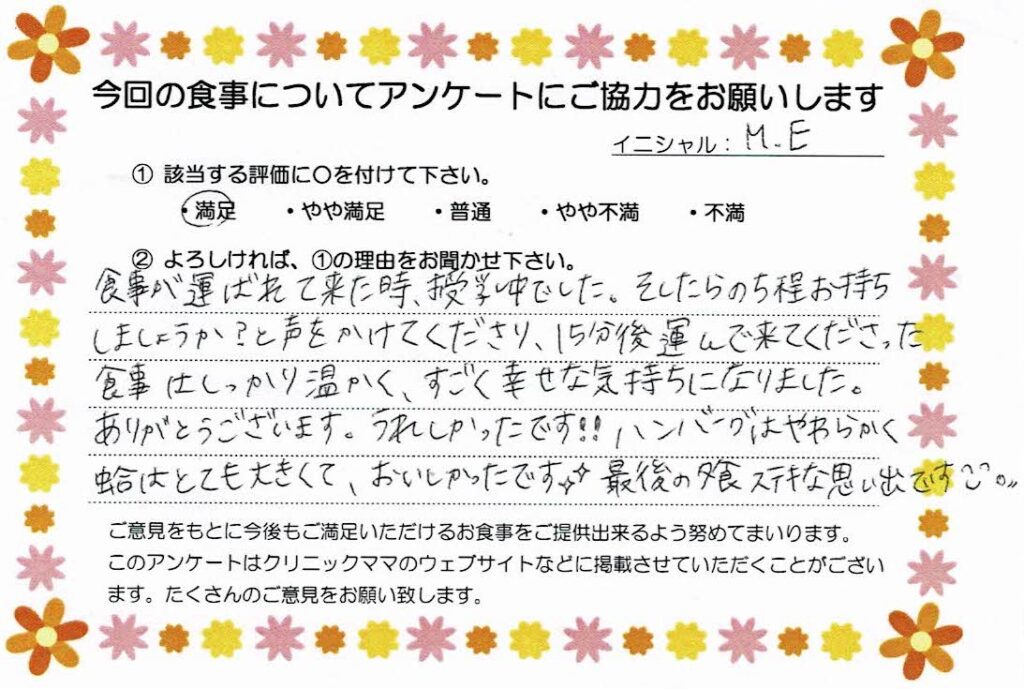 今回の食事についてアンケートにご協力をお願いします
イニシャル：M.E
① 該当する評価に〇を付けて下さい。
・満足 ・やや満足 ・普通 ・やや不満 ・不満
② よろしければ、①の理由をお聞かせ下さい。
食事が運ばれて来た時、授乳中でした。そしたらのち程お持ち
しましょうか？と声をかけてくださり、15分後運んで来てくださった
食事はしっかり温かく、すごく幸せな気持ちになりました。
ありがとうございます。うれしかったです!! ハンバーグはやわらかく
蛤はとても大きくて、おいしかったです 最後の夕食ステキな思い出です
ご意見をもとに今後もご満足いただけるお食事をご提供出来るよう努めてまいります。
このアンケートはクリニックママのウェブサイトなどに掲載させていただくことがござい
ます。たくさんのご意見をお願い致します。